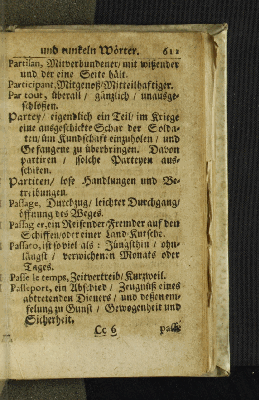 und tunkeln Wörter. 611
Partisan, Mitverbundener/ mit wißender
und der eine Seite hält.
Participant, Mitgenoß/ Mitteilhaftiger.
Par tout, überall / gänzlich / unausge-
schloßen.
Partey/ eigendlich ein Teil/ im Kriege
eine ausgeschickte Schar der Solda-
ten/ üm Kundschaft einzuholen / und
Gefangene zu überbringen. Davon
partiren / solche Parteyen aus-
schiken.
Partiten/ lose Handlungen und Be-
treibungen.
Passage, Durchzug/ leichter Durchgang/
öffnung des Weges.
Passagier, ein Reisender/ Fremder auf den
Schiffen/ oder einer Land Kutsche.
Passato, ist so viel als : Jüngsthin / ohn-
längst / verwichenen Monats oder
Tages.
Passe le temps, Zeitvertreib/ Kurzweil.
Passeport, ein Abschied / Zeugnüß eines
abtretenden Dieners / und deßen em-
felung zu Gunst / Gewogenheit und
Sicherheit.
Cc 6 passe